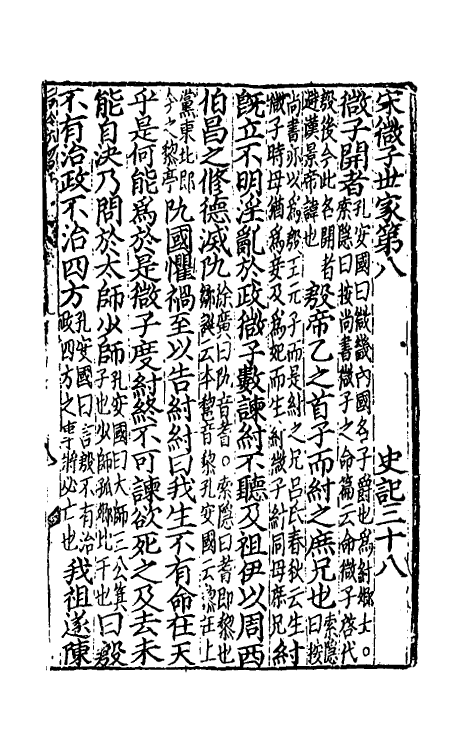 宋微子世家第八 史記三十八
微子開者 孔安國曰微畿內國名子爵也為紂卿士。 索隱曰按尚書微子之命篇云命微子啓代
殷後今此名開者 避漢景帝諱也 殷帝乙之首子而紂之庶兄也 索隱 曰按
尚書亦以為殷王元子而是紂之兄吕氏春秋云生 微子時母猶為妾及為妃而生紂微子紂同母庶兄 紂
既立不明淫亂於政微子數諫紂不聽及祖伊以周西
伯昌之修德滅阢 徐廣曰阢音耆。索隱曰耆即黎也 鄒誕云本黎音黎孔安國云黎在上
黨東北郎 今之黎亭 阢國懼禍至以告紂紂曰我生不有命在天
乎是何能為於是微子度紂終不可諫欲死之及去未
能自決乃問於太師少師 孔安國曰大師三公箕 子也少師孤卿比干也 曰殷
不有治政不治四方 孔安國曰言殷不有治 政四方之事將必亡也 我祖遂陳